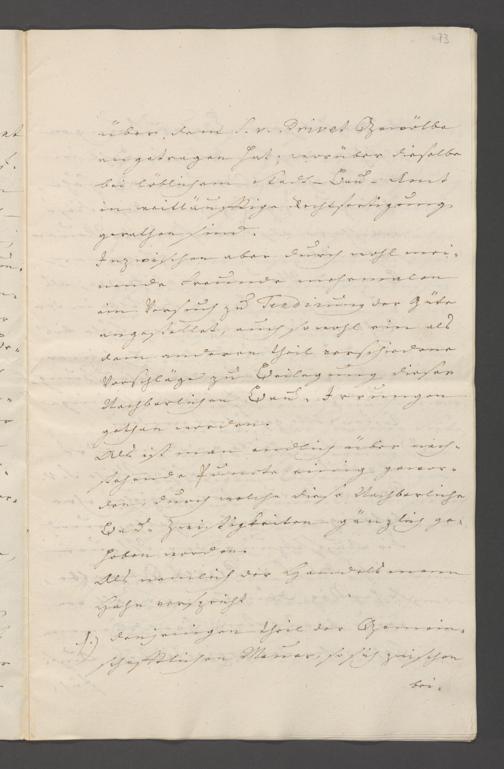 73
über dem S. v. Privet Gewölbe
eingetragen hat; worüber dieselbe
bei löblichem Stadt-Bau-Amt
in weitläuftige Rechtfertigung
gerathen sind.
Inzwischen aber durch wohl mei-
nende Freunde mehrmalen
ein Versuch zu der Güte
angestellet, auch so wohl ein als
dem anderen Theil verschiedene
Vorschläge zu Beilegung dieser
Nachbarlichen Bau-Irrungen
gethan worden.
Als ist man endlich über nach-
stehende Puncte einig gewor-
den, durch welche diese Nachbarliche
Bau-Zwistigkeiten gänzlich ge-
hoben worden.
Als nemlich der Handelsmann
Hahn verspricht
1.) denjenigen Theil der Gemein-
schafftlichen Mauer, so sich zwischen
bei-